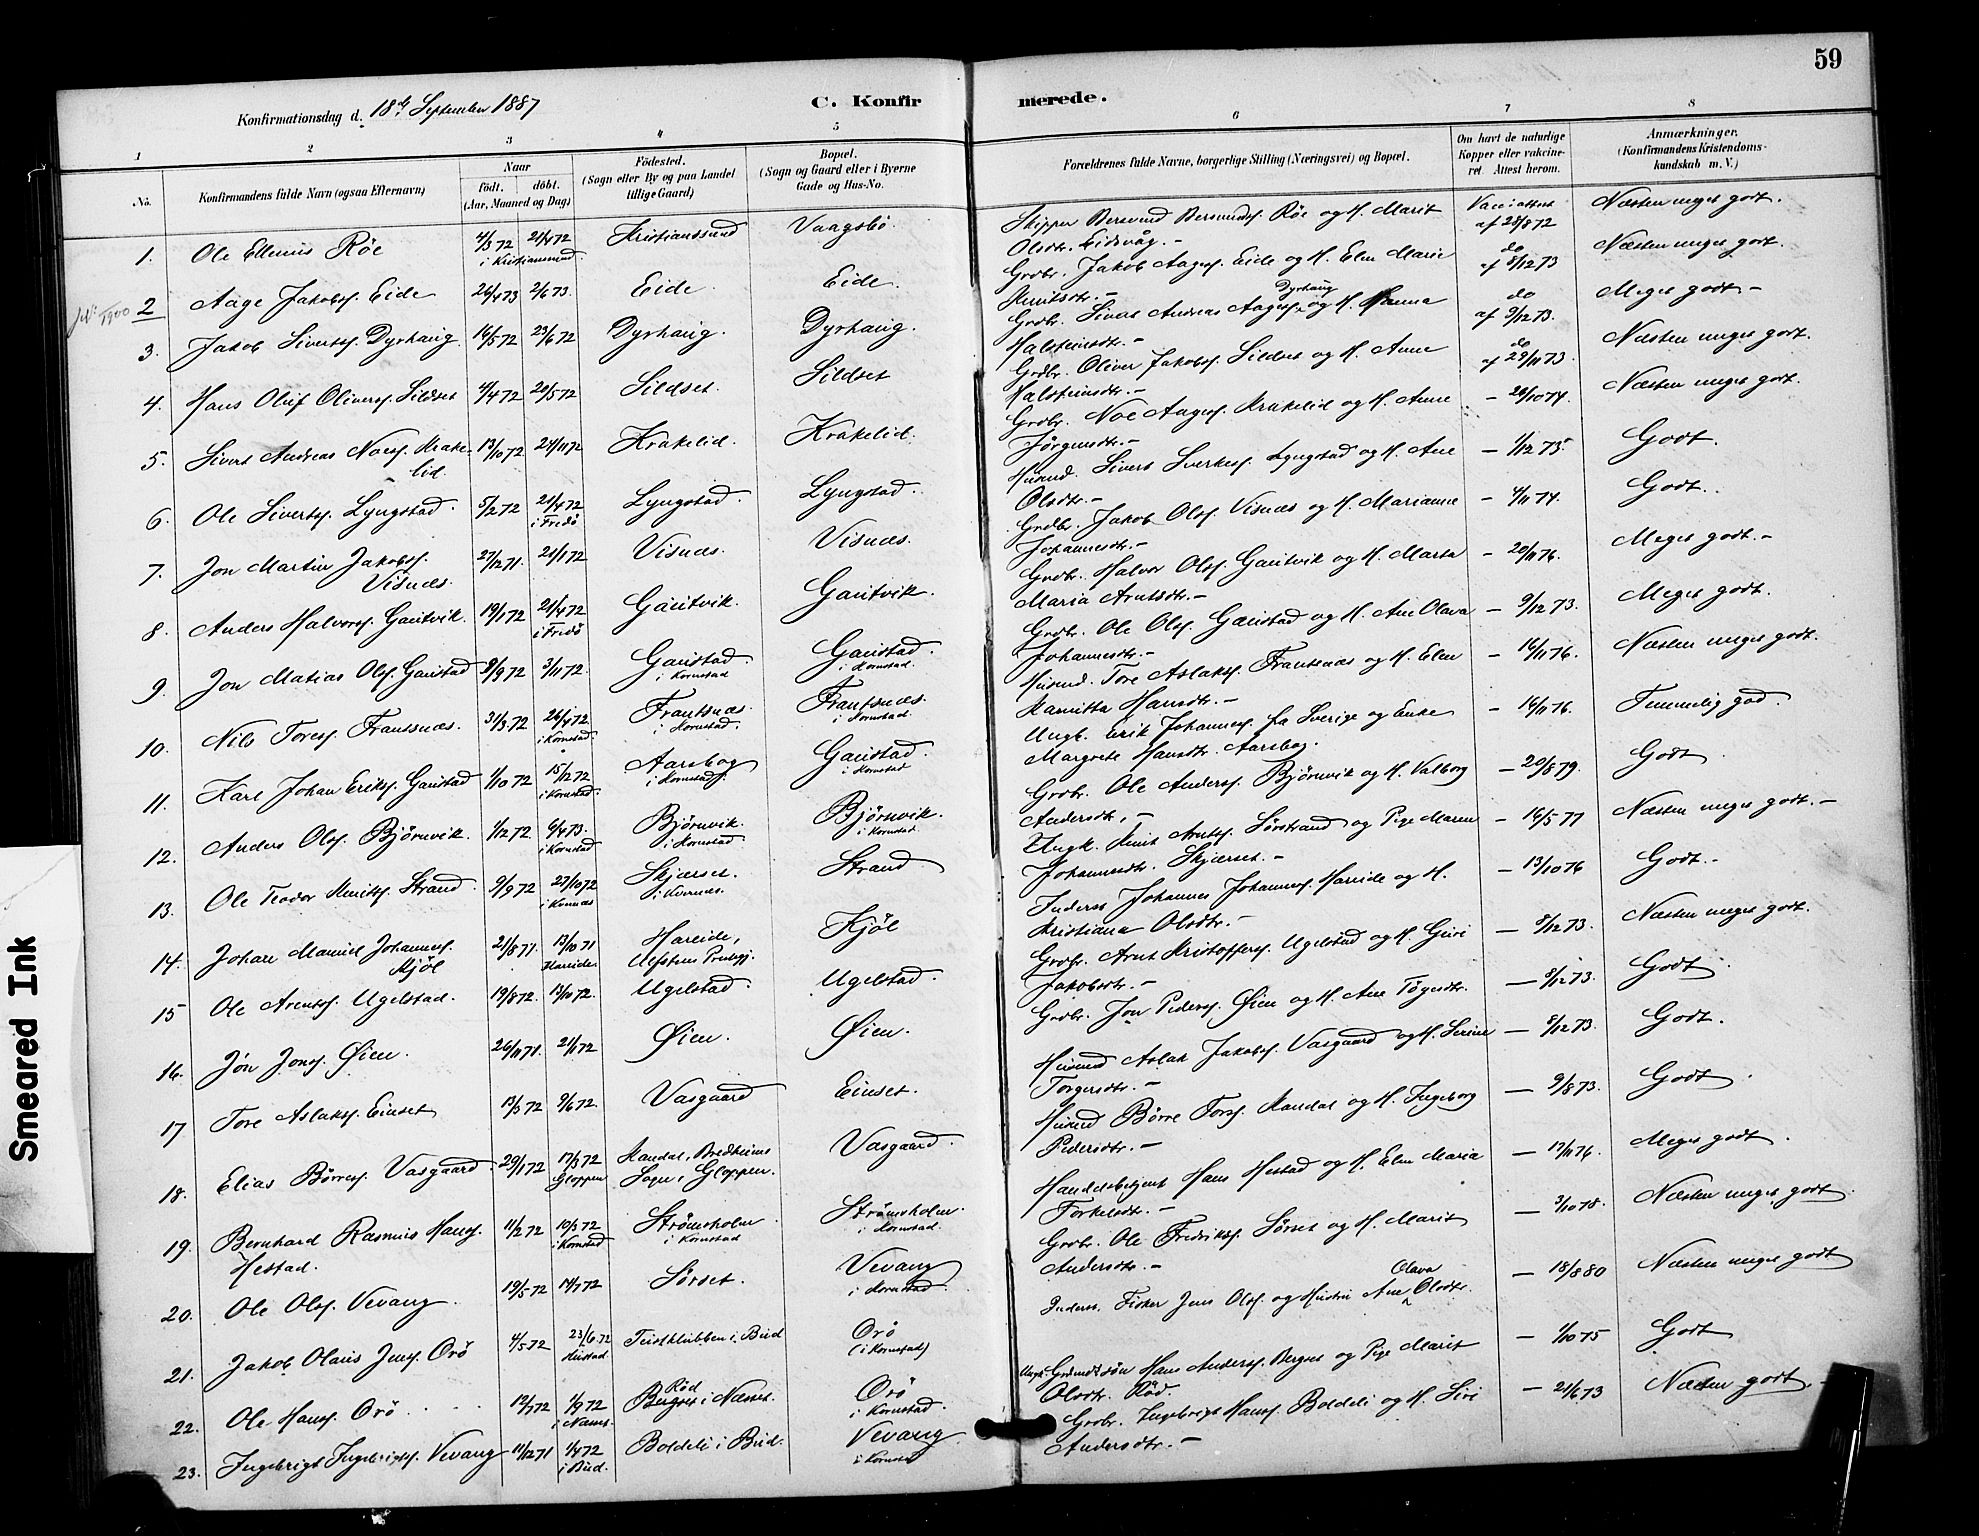 59
Konfirmationsdag d. 18de September 1887
C. Konfir merede.
1 2 3 4 5 6 7 8
No. Konfirmandens fulde Navn (ogsaa Efternavn) Naar födt. döbt. (Aar, Maaned og Dag) Födested. (Sogn eller By og paa Landet tillige Gaard) Bopæl. (Sogn og Gaard eller i Byerne Gade og Hus-No. Forældrenes fulde Navne, borgerlige Stilling (Næringsvei) og Bopæl. Om havt de naturlige Kopper eller vakcineret. Attest herom. Anmærkninger. (Konfirmandens Kristendomskundskab m. V.)
1. Ole Ellenius Röe 4/3 72 21/4 72 i Kristianssund Kristianssund Vaagsbö. Skipper Bersvend Bersvends. Röe og H. Marit Olsdtr. Eidsvåg.- Vacc.attest af 28/8 72 Næsten meget godt.
2 Aage Jakobs. Eide 26/4 73 2/6 73. Eide. Eide. Grdbr. Jakob Aages. Eide og H. Elen Marie Knutsdtr.- do af 8/12 73 Næsten meget godt.
3. Jakob Siverts. Dyrhaug. 16/5 72 23/6 72 Dyrhaug. Dyrhaug. Grdbr. Sivert Andreas Aages. Dyrhaug og H. Hanna Halsteinsdtr.- do af 9/12 73. Meget godt-
4. Hans Oluf Olivers. Sildset 4/4 72 20/5 72 Sildset. Sildset Grdbr. Oliver Jakobs. Sildset og H. Anne Halsteinsdtr.- do af 29/11 73. Næsten meget godt.
5. Sivert Andreas Noes. Krakelid. 13/10 72 24/11 72 Krakelid. Krakelid. Grdbr. Noe Aages. Krakelid og H. Anne Jörgensdtr.- - 26/10 74. Næsten meget godt.
6. Ole Siverts. Lyngstad. 5/2 72 21/4 72 i Fredö Lyngstad. Lyngstad. Husmd. Sivert Sverkes. Lyngstad og H. Ane Olsdtr.- - 1/12 75. Godt.
7. Jon Martin Jakobs. Visnæs. 27/12 71. 21/1 72 Visnæs. Visnæs. Grdbr. Jakob Ols. Visnæs og H. Marianne Johannesdtr.- - 4/11 74. Godt.
8. Anders Halvors. Gautvik. 19/1 72 21/4 72 i Fredö Gautvik. Gautvik. Grdbr. Halvor Ols. Gautvik og H. Marta Maria Arntsdtr.- - 20/11 76. Meget godt.-
9. Jon Matias Ols. Gaustad 8/9 72 3/11 72. Gaustad. i Kornstad Gaustad. i Kornstad. Grdbr. Ole Ols. Gaustad og H. Ane Olava Johannesdtr.- - 9/12 73. Meget godt.
10. Nils Tores. Frantsnæs. 31/3 72 26/4 72 i Kornstad. Frantsnæs. i Kornstad. Frantsnæs. i Kornstad. Husmd. Tore Aslaks. Frantsnæs og H. Elen Hansdtr.- - 16/11 76. Næsten meget godt.
11. Karl Johan Eriks. Gaustad 1/10 72 15/12 72 i Kornstad. Aarsbog i Kornstad. Gaustad i Kornstad Ungk. Erik Johannes. fra Sverige og Enke Margrete Hansdtr. Aarsbog. - 14/11 76. Temmelig god.
12. Anders Ols. Björnvik. 1/12 72 6/4 73. i Kornstad Björnvik. i Kornstad Björnvik. i Kornstad Grdbr. Ole Anders. Björnvik og H. Valborg Andersdtr.- - 20/8 79. Godt
13. Ole Teodor Knuts. Strand. 9/9 72 27/10 72 i Kvernæs Skjærset. i Kvernæs. Strand Ungk. Knut Arnts. Sörstrand og Pige Maren Johannesdtr. Skjærset.- - 16/5 77 Næsten meget godt.-
14. Johan Manuel Johannes. Kjöl 21/8 71. 13/10 71 Hareide Hareide, Ulfstens Præstgj. Kjöl Inderst Johannes Johannes. Hareide og H. Kristiana Olsdtr.- - 13/10 76 Godt.-
15 Ole Arents. Ugelstad. 19/8 72. 13/10 72. Ugelstad. Ugelstad. Grdbr. Arnt Kristoffers. Ugelstad og H. Guri Jakobsdtr.- - 8/12 73. Næsten meget godt.
16. Jon Jons. Öien. 26/11 71. 21/1 72 Öien. Öien. Grdbr. Jon Peders. Öien og H. Ane Tögersdtr. - 8/12 73. Godt.
17 Tore Aslaks. Einset 13/5 72 9/6 72. Vasgaard Einset. Husmd Aslak Jakobs. Vasgaard og H. Serine Torgersdtr.- - 8/12 73. Godt.
18. Elias Börres. Vasgaard. 29/1 72 17/3 72 Gloppen Kandal, Bredheims Sogn, Gloppen. Vasgaard. Husmd Börre Tors. Kandal og H. Ingeborg Pedersdtr.- - 9/8 73. Godt.
19. Bernhard Rasmus Hans. Hestad. 11/2 72 10/3 72 i Kornstad Strömsholm. i Kornstad Strömsholm. i Kornstad. Handelsbetjent Hans Hestad og H. Elen Maria Torkelsdtr.- - 12/11 76. Meget godt.
20. Ole Ols. Vevang. 19/5 72 14/7 72 Sörset. Vevang i Kornstad. Grdbr. Ole Fredriks. Sörset og H. Marit Andersdtr.- - 3/10 78. Næsten meget godt
21. Jakob Olaus Jens. Orö 4/5 72 23/6 72 Hustad Teistklubben i Bud Orö (i Kornstad) Inderst. Fisker Jens Ols. og Hustru Ane Olava Olsdtr. - 18/8 80 Næsten meget godt
22. Ole Hans. Orö 12/7 72 i Næsset. Röd Bergset i Næsset. Orö i Kornstad. Ungk. Grdmdssön Hans Anders. Bergset og Pige Marit Olsdtr. Röd. - 1/10 75 Godt
23. Ingebrigt Ingebrigts. Vevang 11/12 71 1/4 72 i Bud. Boldeli i Bud. Vevang. i Kornstad Grdbr. Ingebrigt Hans. Boldeli og H. Siri Andersdtr.- - 21/6 73 Næsten godt.-
Smeared Ink